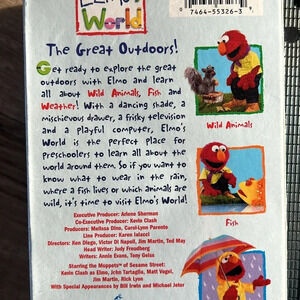 Elmo's
World
0 7464-55326-3
The Great Outdoors!
Get ready to explore the great
outdoors with Elmo and learn
all about Wild Animals, Fish and
Weather! With a dancing shade, a
mischievous drawer, a frisky television
and a playful computer, Elmo's
World is the perfect place for
preschoolers to learn all about the
world around them. So if you want to
know what to wear in the rain,
where a fish lives or which animals are
wild, it's time to visit Elmo's World!
Wild Animals
Fish
Executive Producer: Arlene Sherman
Co-Executive Producer: Kevin Clash
Producers: Melissa Dino, Carol-Lynn Parente
Line Producer: Karen Ialacci
Directors: Ken Diego, Victor Di Napoli, Jim Martin, Ted May
Head Writer: Judy Freudberg
Writers: Annie Evans, Tony Geiss
Starring the Muppets™ of Sesame Street:
Kevin Clash as Elmo, John Tartaglia, Matt Vogel,
Jim Martin, Rick Lyon
With Special Appearances by Bill Irwin and Michael Jeter